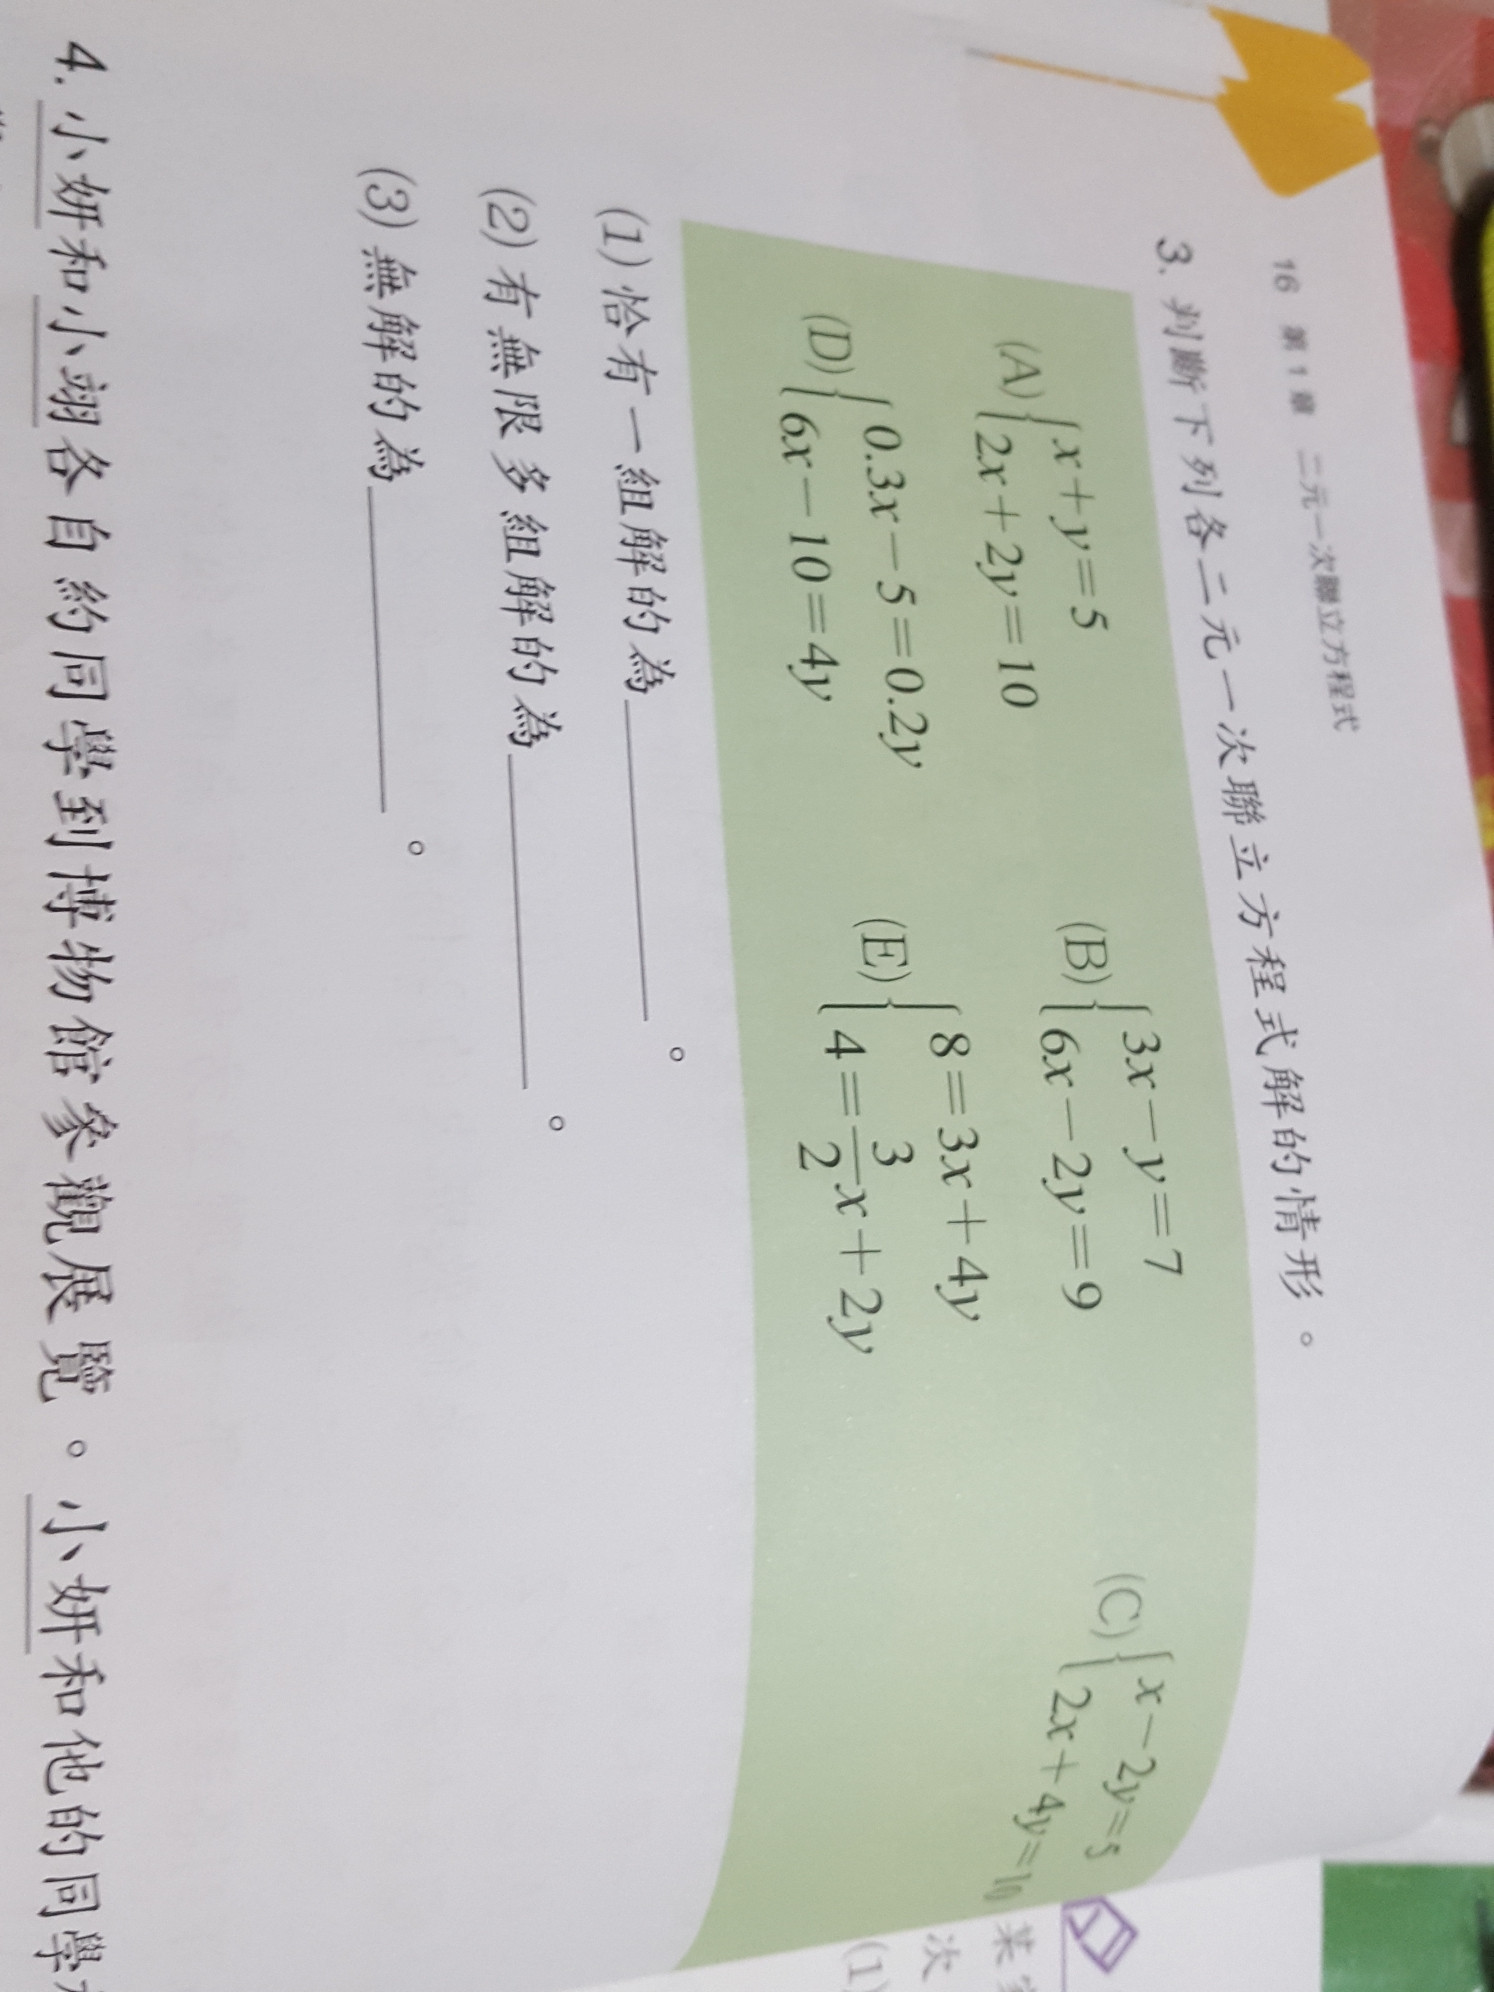 16 第1章 二元一次聯立方程式
3. 判斷下列各二元一次聯立方程式解的情形。
(A){x+y=5
2x+2y=10
(B){3x-y=7
6x-2y=9
(C){x-2y=5
2x+4y=10
(D){0.3x-5=0.2y
6x-10=4y
(E){8=3x+4y
4=3/2x+2y
(1)恰有一組解的為__________。
(2)有無限多組解的為__________。
(3)無解的為__________。
4. 小妍和小翊各自約同學到博物館參觀展覽。小妍和他的同學
次
(1)